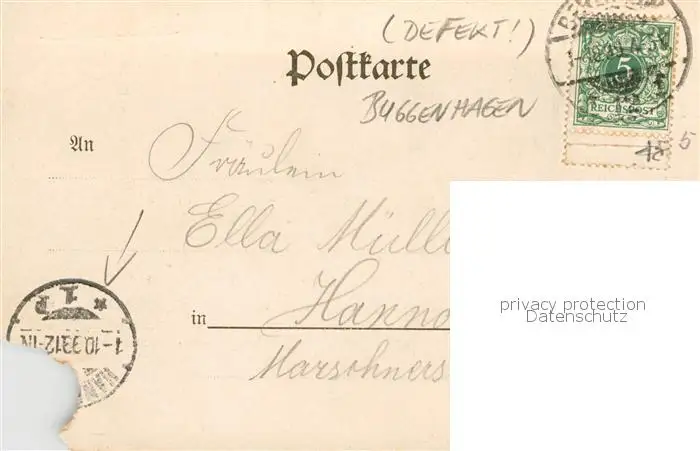 (DEFEKT!)
Postkarte
BUGGENHAGEN
5
REICHSPOST
An
Fräulein
Ella Mülle
in Hanno
1-10.99.12-1N
15 5
privacy protection
Datenschutz